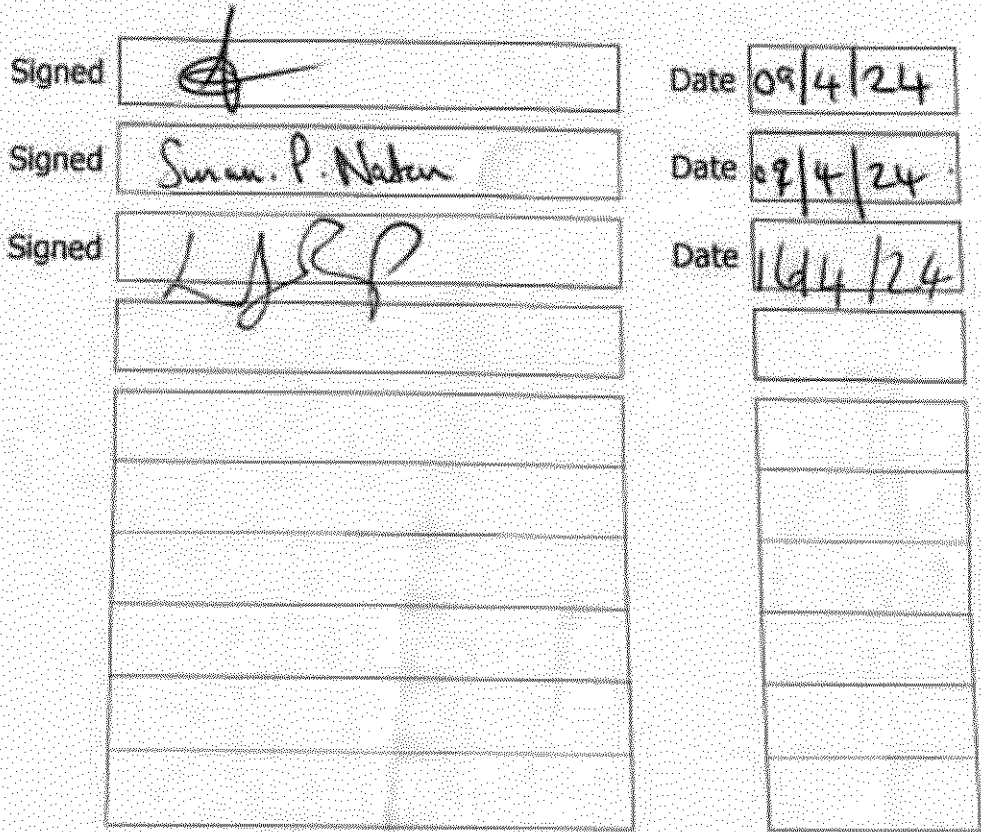 Signed Date 09/4/24
Signed P. Date 09/4/24
Signed Date 16/4/24